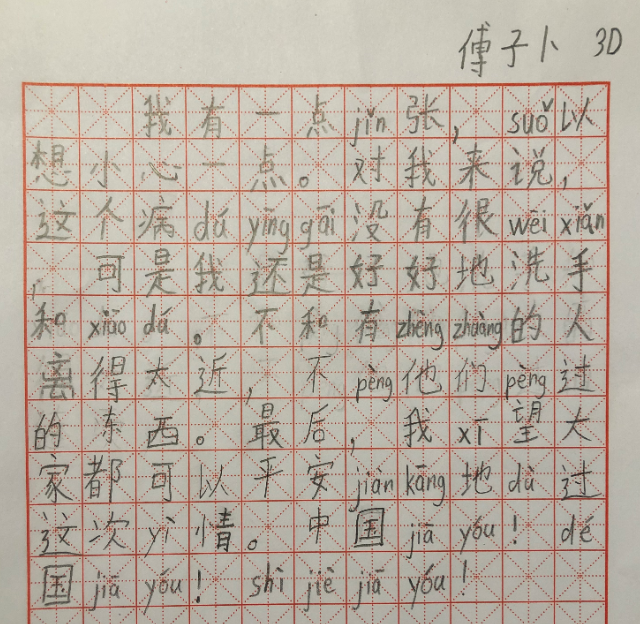 傅子卜 3D
我有一点jǐn张，suǒ以
想小心一点。对我来说，
这个病dú yīng gāi没有很wēi xiǎn
，可是我还是好好地洗手
和xiāo dú。不和有zhèng zhuàng的人
离得太近，不pèng他们pèng过
的东西。最后，我xī望大
家都可以平安jiàn kāng地dù过
这次yì情。中国jiā yóu！dé
国jiā yóu！shì jiè jiā yóu！